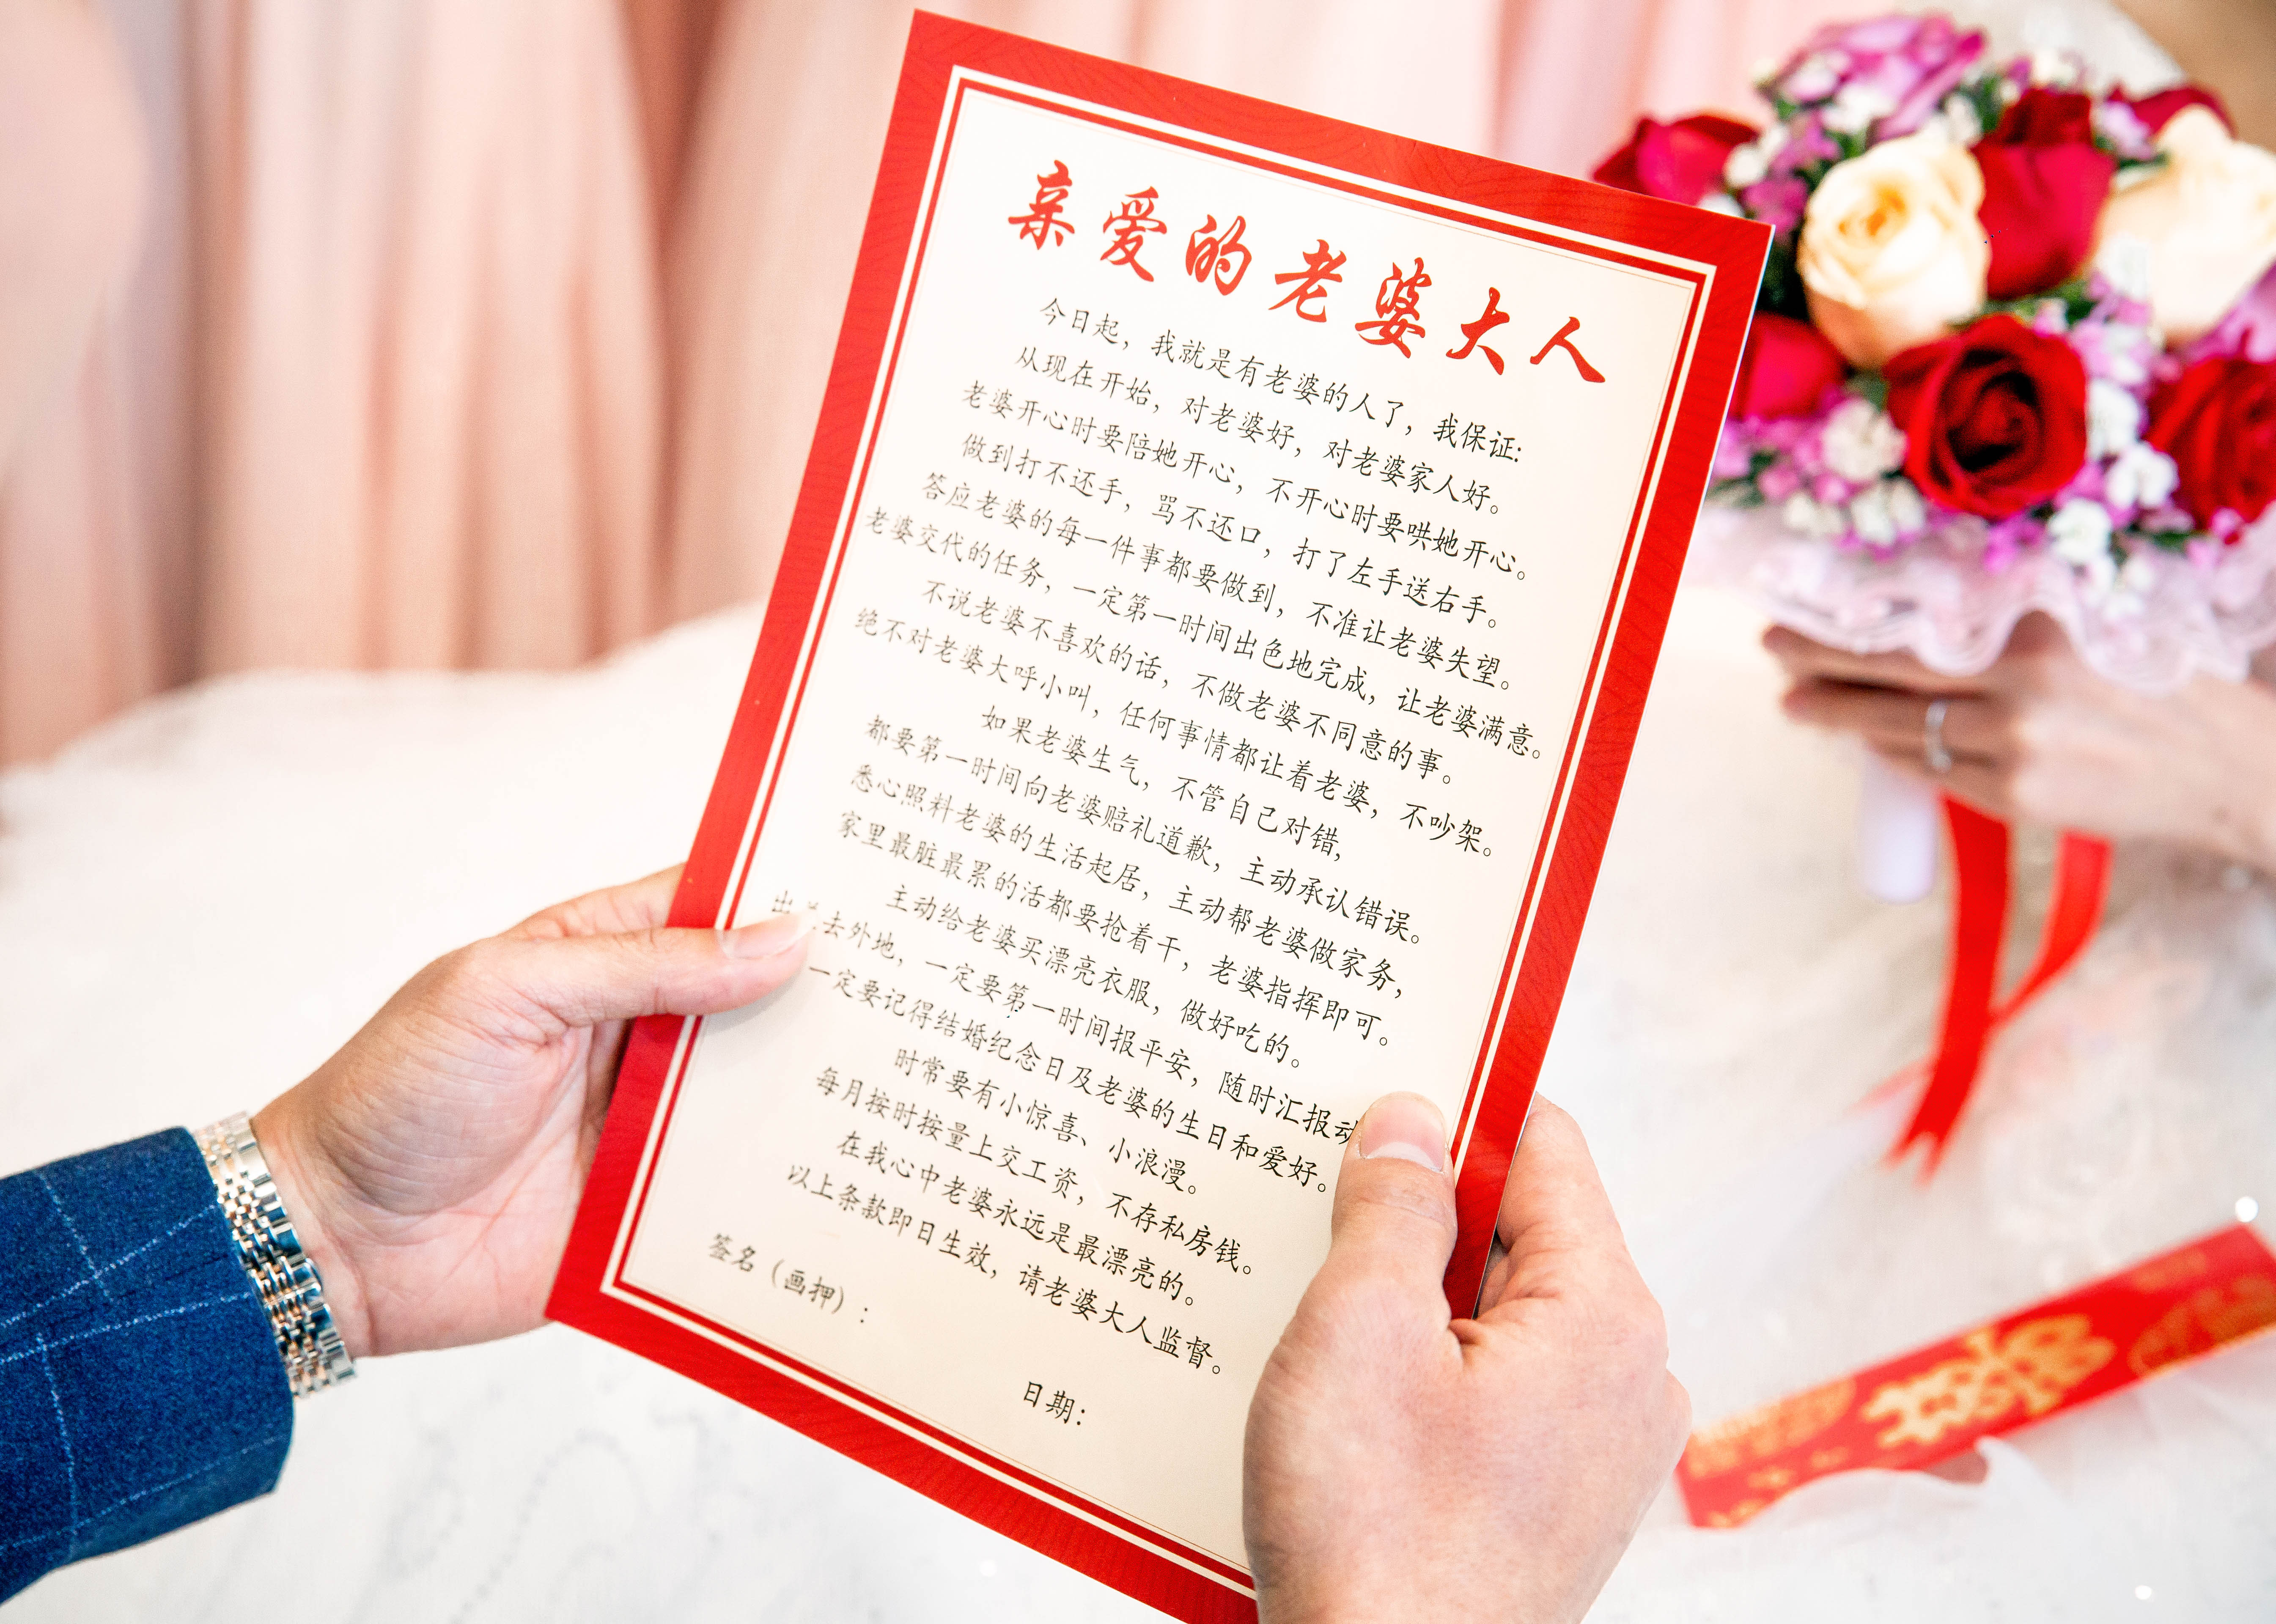 亲爱的老婆大人
今日起，我就是有老婆的人了，我保证:
从现在开始，对老婆好，对老婆家人好。
老婆开心时要陪她开心，不开心时要哄她开心。
做到打不还手，骂不还口，打了左手送右手。
答应老婆的每一件事都要做到，不准让老婆失望。
老婆交代的任务，一定第一时间出色地完成，让老婆满意。
不说老婆不喜欢的话，不做老婆不同意的事。
绝不对老婆大呼小叫，任何事情都让着老婆，不吵架。
如果老婆生气，不管自己对错，
都要第一时间向老婆赔礼道歉，主动承认错误。
悉心照料老婆的生活起居，主动帮老婆做家务，
家里最脏最累的活都要抢着干，老婆指挥即可。
主动给老婆买漂亮衣服，做好吃的。
出 去外地，一定要第一时间报平安，随时汇报动
一定要记得结婚纪念日及老婆的生日和爱好。
时常要有小惊喜、小浪漫。
每月按时按量上交工资，不存私房钱。
在我心中老婆永远是最漂亮的。
以上条款即日生效，请老婆大人监督。
签名（画押）：
日期：
囍